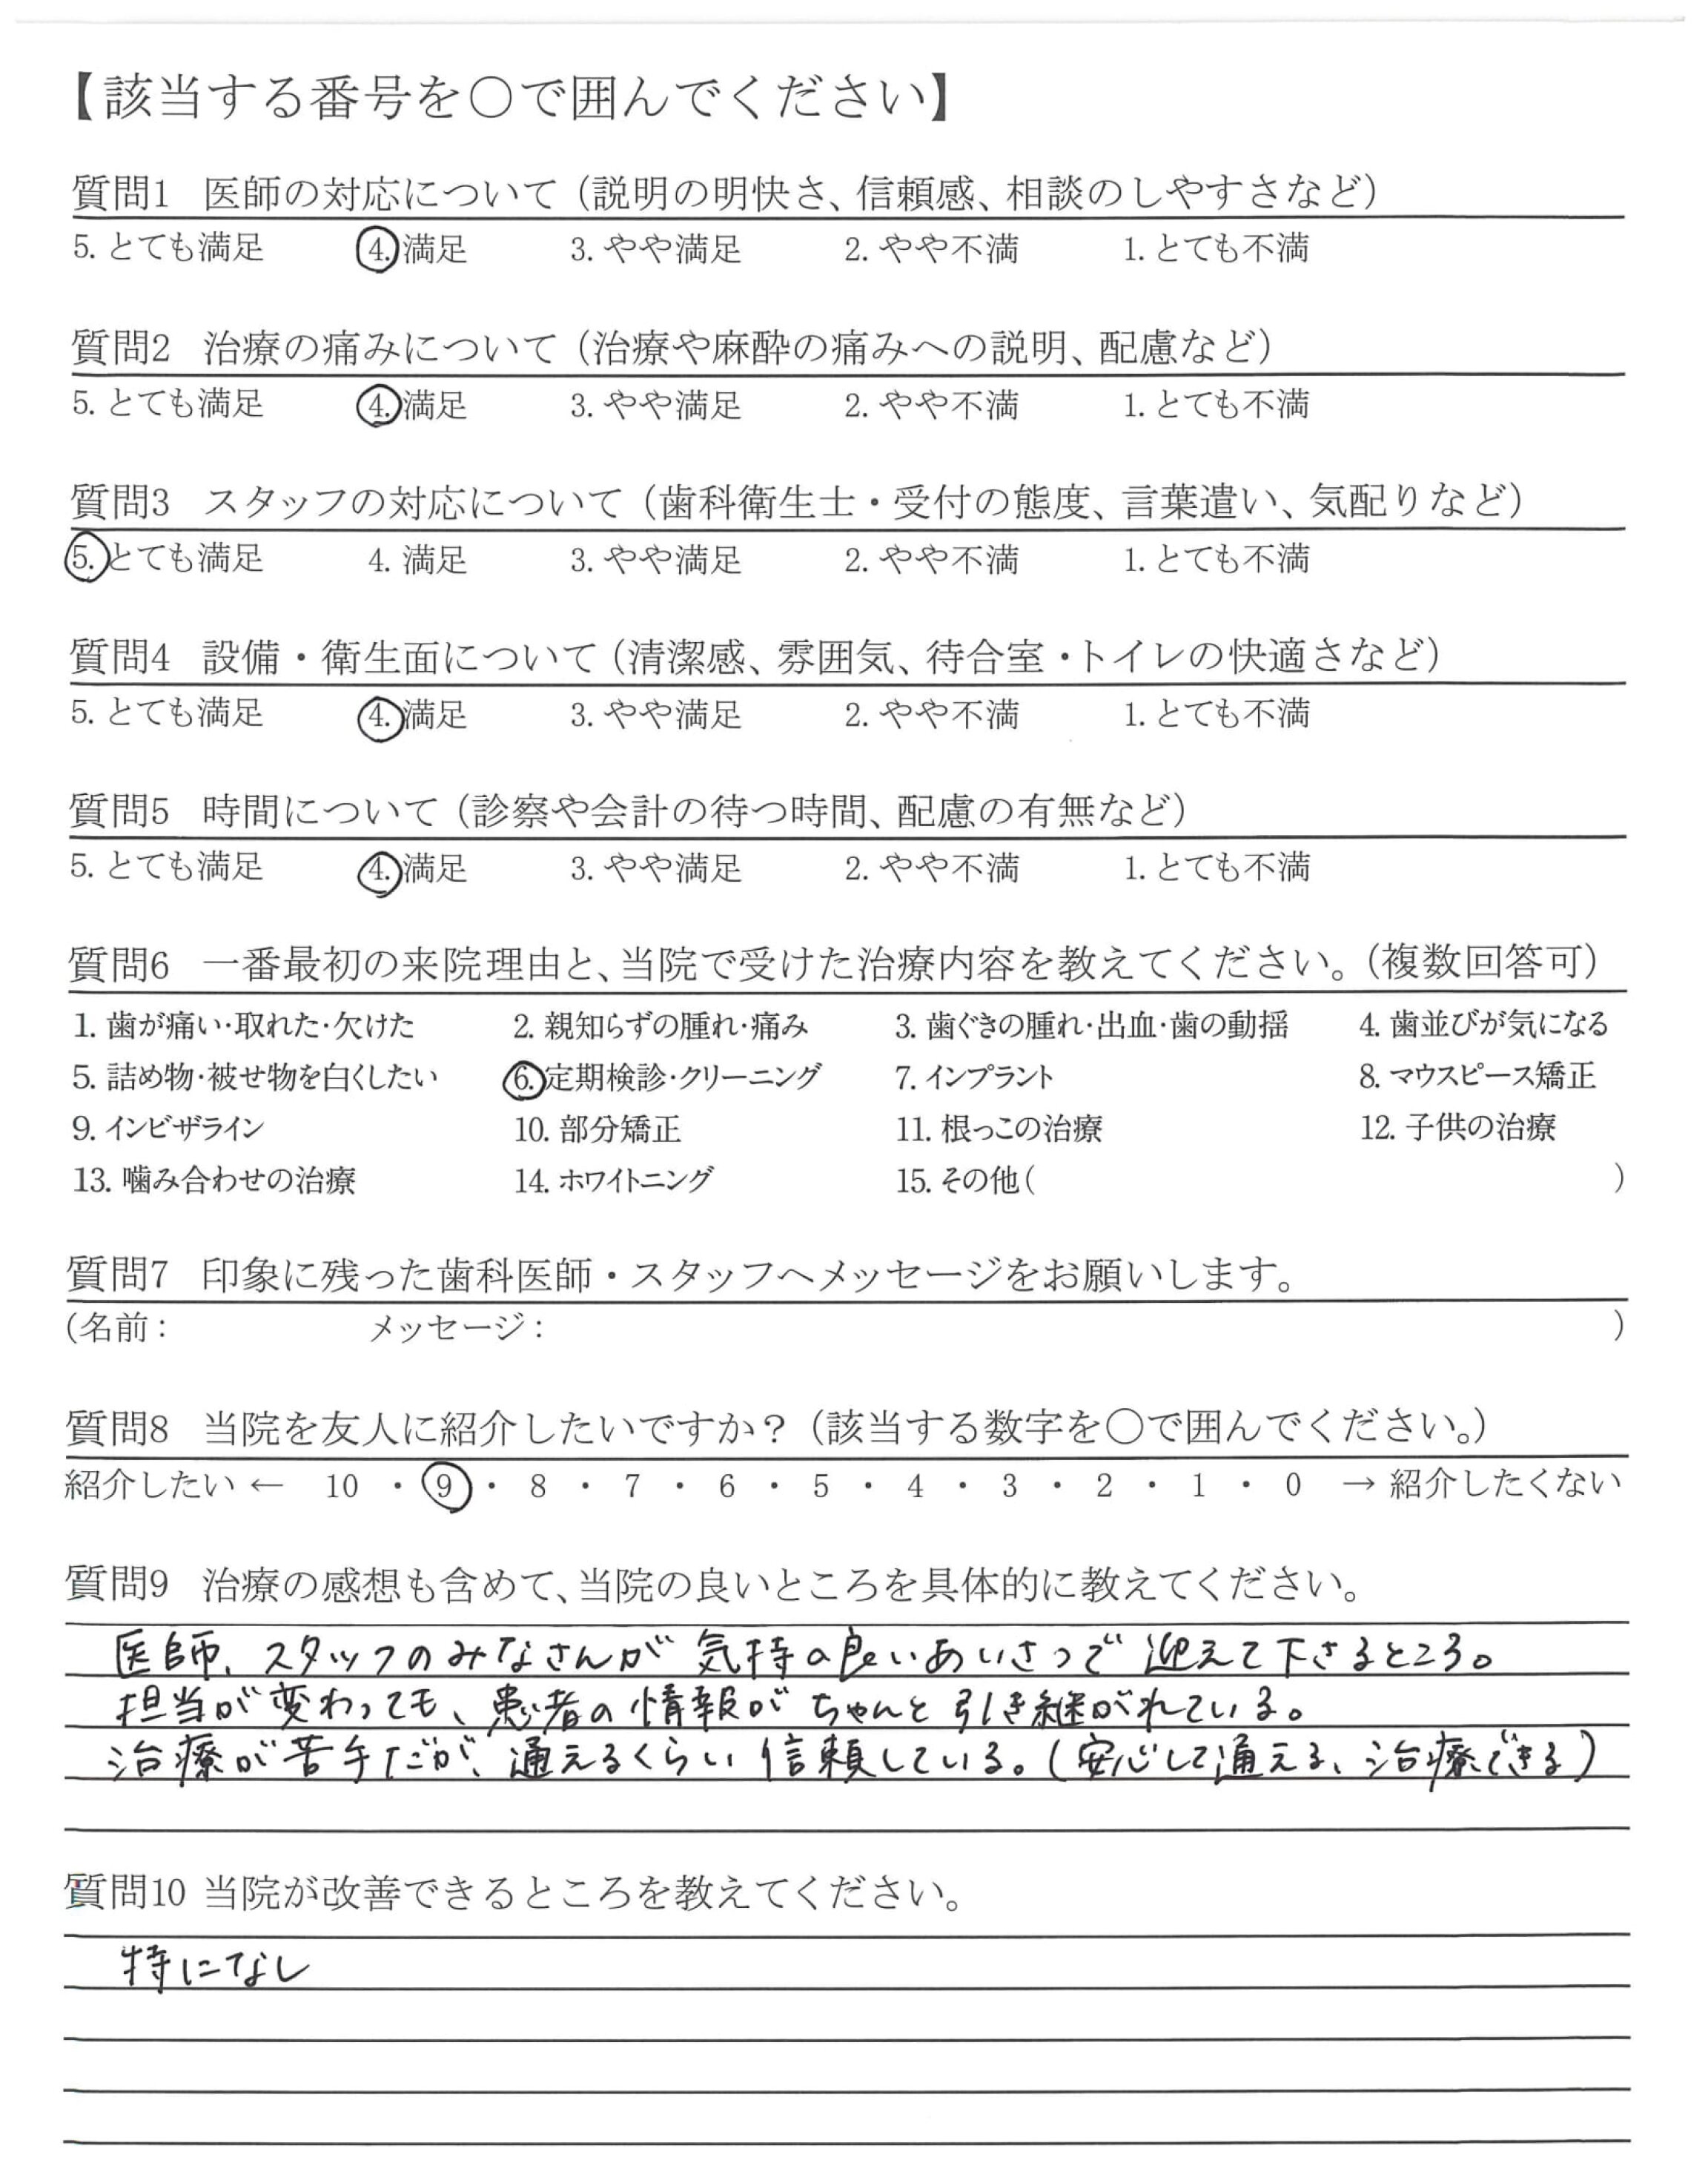 【該当する番号を○で囲んでください】
質問1 医師の対応について（説明の明快さ、信頼感、相談のしやすさなど）
5. とても満足 4. 満足 3. やや満足 2. やや不満 1. とても不満
質問2 治療の痛みについて（治療や麻酔の痛みへの説明、配慮など）
5. とても満足 4. 満足 3. やや満足 2. やや不満 1. とても不満
質問3 スタッフの対応について（歯科衛生士・受付の態度、言葉遣い、気配りなど）
5. とても満足 4. 満足 3. やや満足 2. やや不満 1. とても不満
質問4 設備・衛生面について（清潔感、雰囲気、待合室・トイレの快適さなど）
5. とても満足 4. 満足 3. やや満足 2. やや不満 1. とても不満
質問5 時間について（診察や会計の待つ時間、配慮の有無など）
5. とても満足 4. 満足 3. やや満足 2. やや不満 1. とても不満
質問6 一番最初の来院理由と、当院で受けた治療内容を教えてください。（複数回答可）
1. 歯が痛い・取れた・欠けた 2. 親知らずの腫れ・痛み 3. 歯ぐきの腫れ・出血・歯の動揺 4. 歯並びが気になる
5. 詰め物・被せ物を白くしたい 6. 定期検診・クリーニング 7. インプラント 8. マウスピース矯正
9. インビザライン 10. 部分矯正 11. 根っこの治療 12. 子供の治療
13. 噛み合わせの治療 14. ホワイトニング 15. その他（ ）
質問7 印象に残った歯科医師・スタッフへメッセージをお願いします。
（名前： メッセージ： ）
質問8 当院を友人に紹介したいですか？（該当する数字を○で囲んでください。）
紹介したい ← 10 ・ 9 ・ 8 ・ 7 ・ 6 ・ 5 ・ 4 ・ 3 ・ 2 ・ 1 ・ 0 → 紹介したくない
質問9 治療の感想も含めて、当院の良いところを具体的に教えてください。
医師、スタッフのみなさんが気持の良いあいさつで迎えて下さるところ。
担当が変わっても、患者の情報がちゃんと引き継がれている。
治療が苦手だが、通えるくらい信頼している。（安心して通える、治療できる）
質問10 当院が改善できるところを教えてください。
特になし